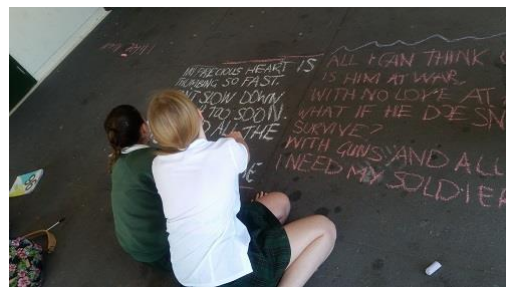 MY PRECIOUS HEART IS
THUMPING SO FAST.
SLOW DOWN
TOO SOON.
ALL THE
ALL I CAN THINK
IS HIM AT WAR.
WITH NO LOVE AT
WHAT IF HE DOESN
SURVIVE?
WITH GUNS AND ALL
I NEED MY SOLDIER